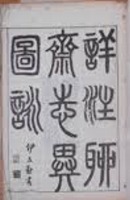 詳注聊
齋志異
圖詠